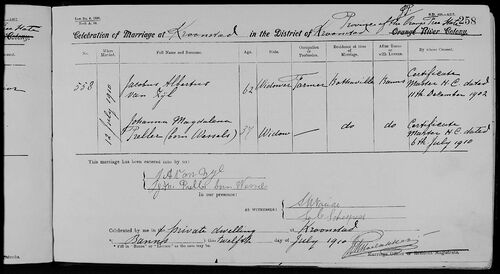 Celebration of Marriage at Kroonstad in the District of Kroonstad Province of the Orange Free State Orange River Colony. 258
When Married.
Full Name and Surname.
Age.
State.
Occupation or Profession.
Residence at time of Marriage.
After Banns or with License.
By whose Consent.
558
12 July 1910
Jacobus Albertus van Zyl
62
Widower
Farmer
Banns
Certificate Master H.C. dated 11th December 1902
Johanna Magdalena Preller (born Wessels)
57
Widow
do
do
Certificate Master H.C. dated 6th July 1910
This marriage has been entered into by :—
J A van Zyl
Preller born Wessels
In presence of :—
AS WITNESSES
Celebrated by me at private dwelling at Kroonstad
Banns this twelfth day of July 1910
Fill in "Banns" or "License" as the case may be.
Marriage Officer or Resident Magistrate.
Colony.